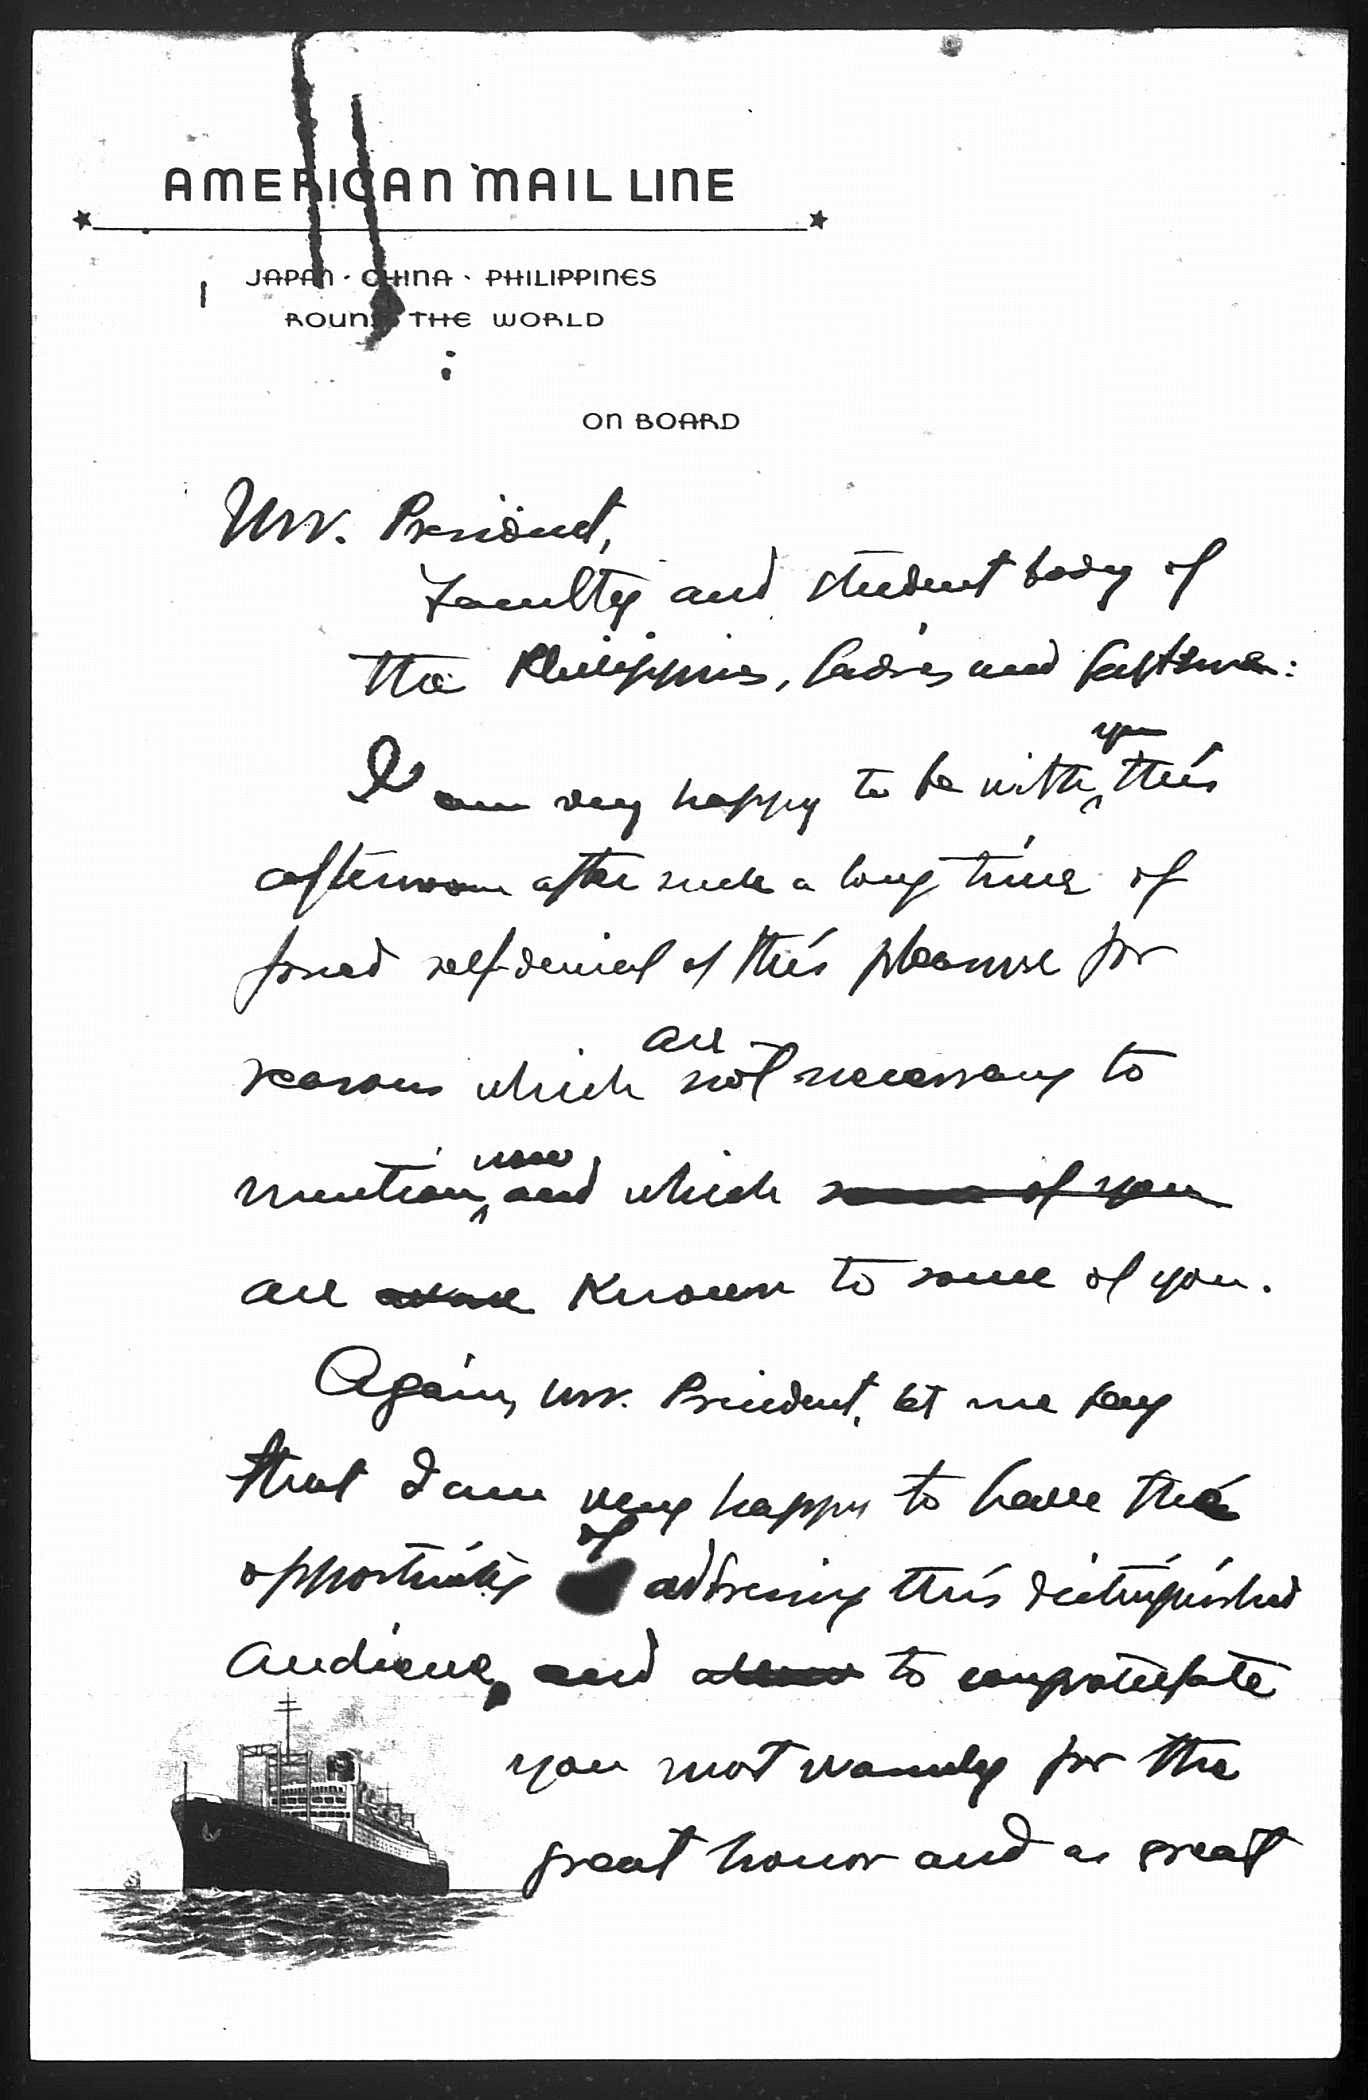 AMERICAN MAIL LINE
JAPAN · CHINA · PHILIPPINES
ROUND THE WORLD
ON BOARD
Mr. President,
Faculty and student body of
the Philippines, ladies and gentlemen:
I am very happy to be with you this
afternoon after such a long time of
forced self-denial of this pleasure for
reasons which are not necessary to
mention now and which some of you
are known to some of you.
Again, Mr. President, let me say
that I am very happy to have the
opportunity of addressing this distinguished
audience, and to congratulate
you most warmly for the
great honor and as great